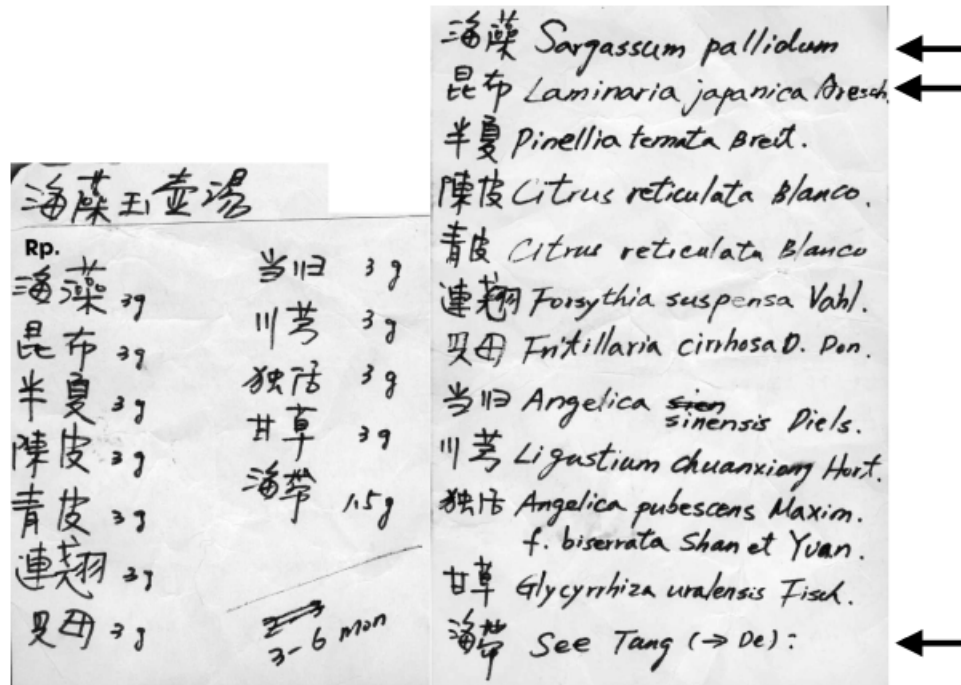 海藻玉壺湯
Rp.
海藻 3g
昆布 3g
半夏 3g
陳皮 3g
青皮 3g
連翹 3g
贝母 3g
当归 3g
川芎 3g
独活 3g
甘草 3g
海带 1.5g
3-6 mon
海藻 Sargassum pallidum
昆布 Laminaria japanica Aresch.
半夏 Pinellia ternata Breit.
陳皮 Citrus reticulata Blanco.
青皮 Citrus reticulata Blanco
連翹 Forsythia suspensa Vahl.
贝母 Fritillaria cirrhosa D. Don.
当归 Angelica sinensis Diels.
川芎 Ligustium chuanxiong Hort.
独活 Angelica pubescens Maxim.
f. biserrata Shan et Yuan.
甘草 Glycyrrhiza uralensis Fisch.
海带 See Tang (→ De):